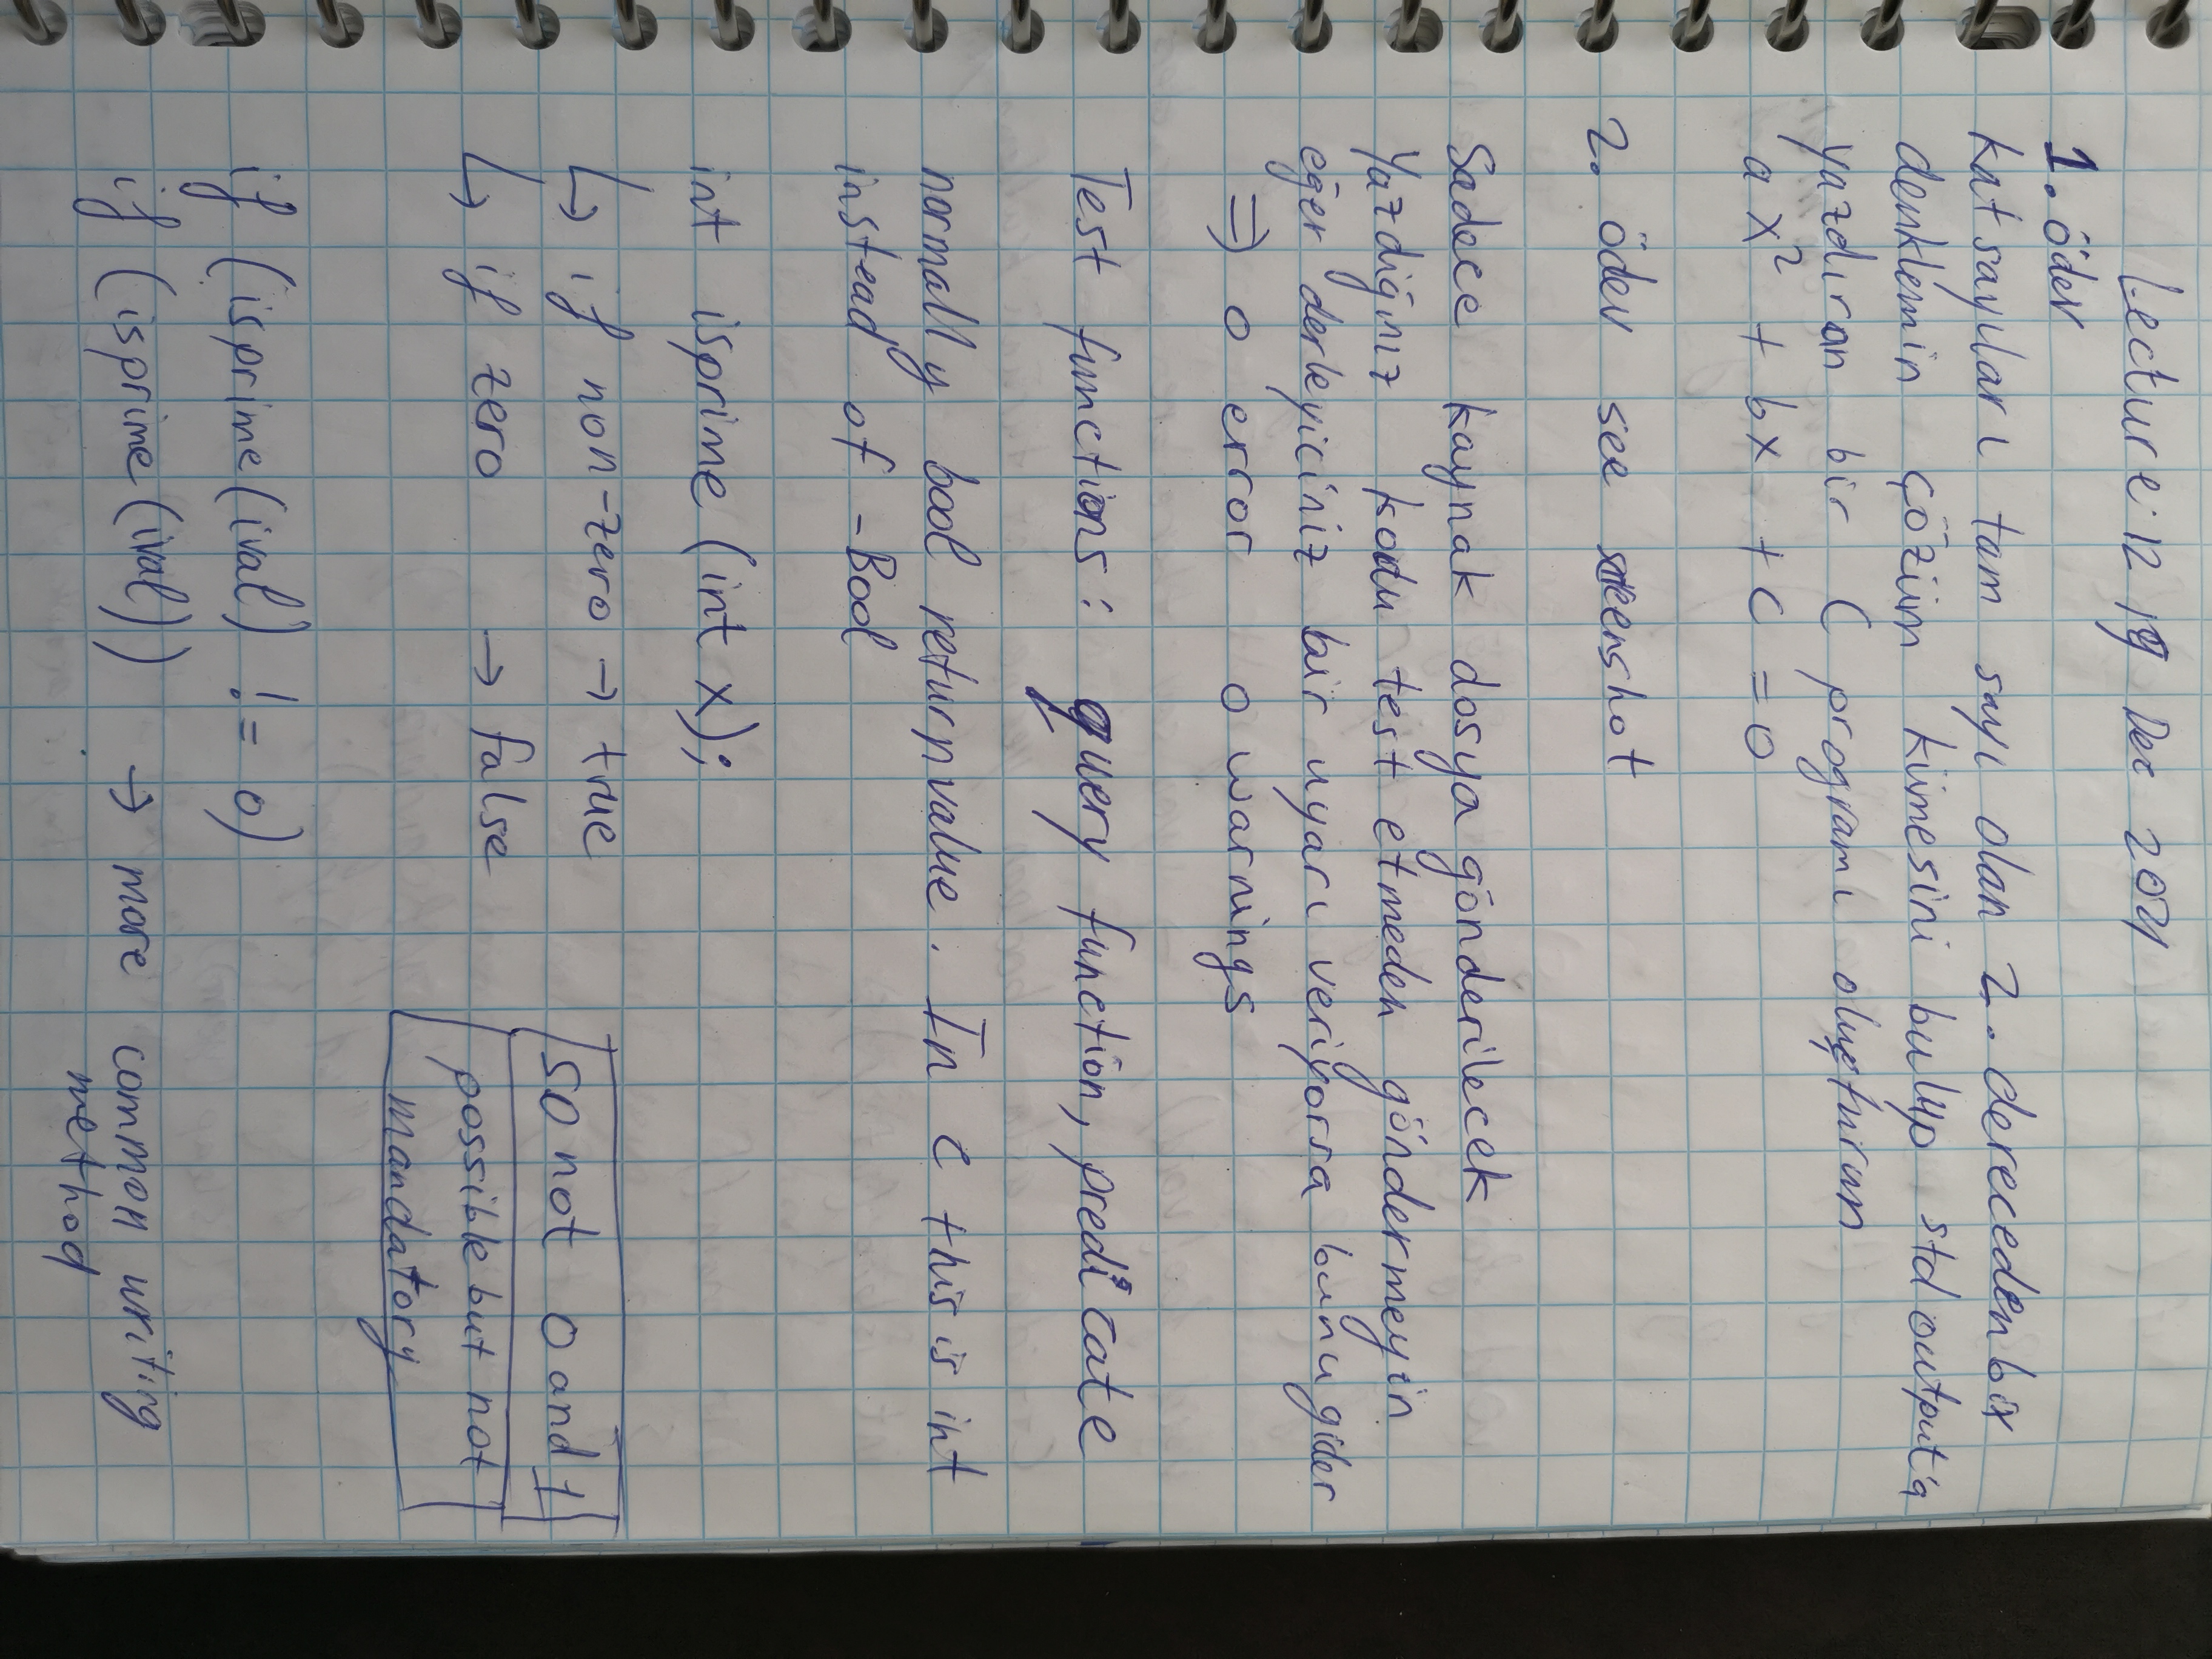 Lecture 12 19 Dec 2021
1. ödev
katsayıları tam sayı olan 2. dereceden bir
denklemin çözüm kümesini bulup std output'a
yazdıran bir C programı oluşturun
ax² + bx + c = 0
2. ödev see screenshot
Sadece kaynak dosya gönderilecek
Yazdiğınız kodu test etmeden göndermeyin
eğer derleyiciniz bir uyarı veriyorsa bunu gider
⇒ 0 error 0 warnings
Test functions: query function, predicate
normally bool return value. In C this is int
instead of _Bool
int isprime (int x);
↳ if non-zero → true
↳ if zero → false
so not 0 and 1
possible but not
mandatory
if (isprime(ival) != 0)
if (isprime(ival)) → more common writing
method